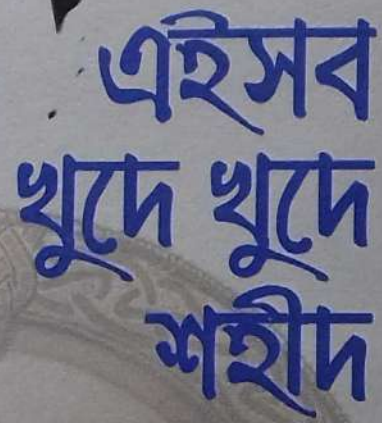 এইসব
খুদে খুদে
শহীদ